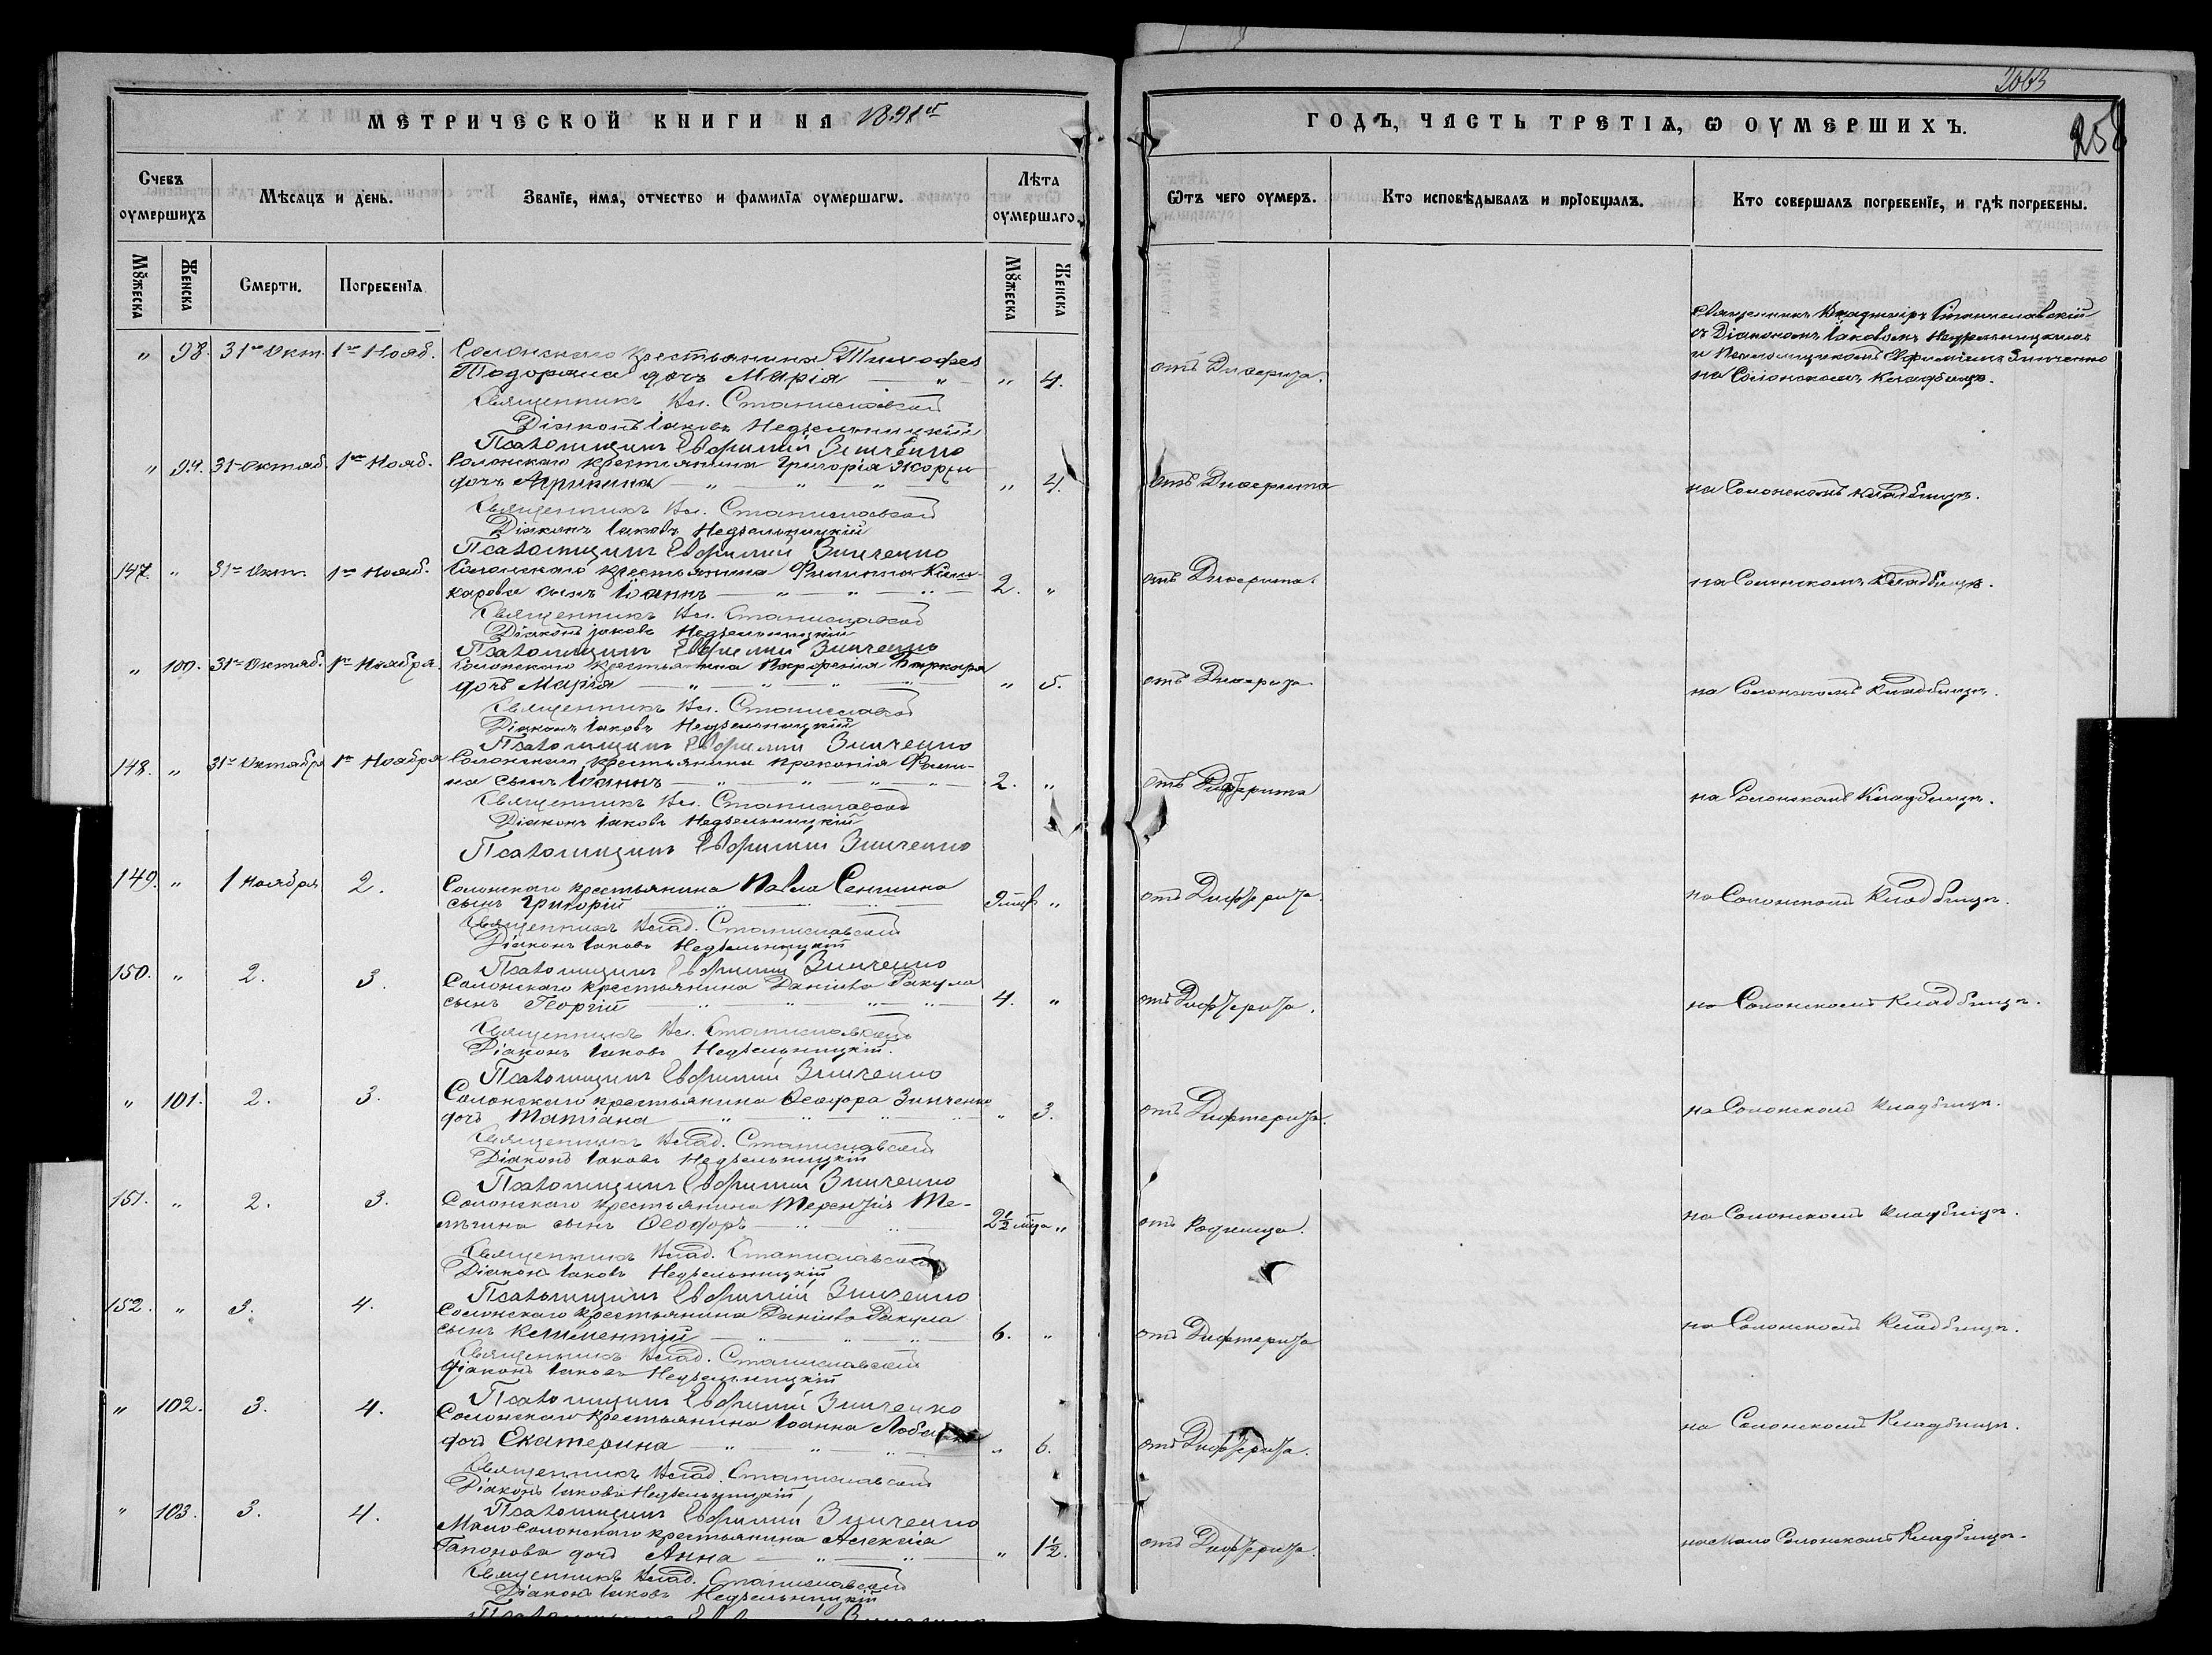 2063
МЕТРИЧЕСКОЙ КНИГИ НА 1891й
ГОДЪ, ЧАСТЬ ТРЕТІѦ, Ѡ ОУМЕРШИХЪ.
258
Счевъ оумершихъ
Мѣсѧцъ и день.
Званїе, имѧ, отчество и фамилїѧ оумершагѡ.
Лѣта оумершаго
Ѿтъ чего оумеръ.
Кто исповѣдывалъ и прїобщалъ.
Кто совершалъ погребенїе, и гдѣ погребены.
Мꙋжеска
Женска
Смерти.
Погребенїѧ
Мꙋжеска
Женска
" 98. 31го Окт. 1го Нояб. Солонскаго крестьянина Тимофея
дочь Марія " 4. отъ
Священникъ Вл. Станиславскій
Діаконъ Іаковъ Недѣльницкій
Псаломщикъ Евфимій Зинченко
Священникъ Владиміръ Станиславскій
съ Діакономъ Іаковомъ Недѣльницкимъ
и Псаломщикомъ Евфиміемъ Зинченко
на Солонскомъ Кладбищѣ.
" 99. 31 Октяб. 1го Нояб. Солонскаго крестьянина Григорія
дочь Агрипина " 4. отъ на Солонскомъ кладбищѣ.
Священникъ Вл. Станиславскій
Діаконъ Іаковъ Недѣльницкій
Псаломщикъ Евфимій Зинченко
147. " 31го Окт. 1го Нояб. Солонскаго крестьянина Филиппа
сынъ Іоаннъ 2. " отъ на Солонскомъ Кладбищѣ.
Священникъ Вл. Станиславскій
Діаконъ Іаковъ Недѣльницкій
Псаломщикъ Евфимій Зинченко
" 100. 31го Октяб. 1го Ноября. Солонскаго крестьянина
дочь Марія " 5. отъ на Солонскомъ Кладбищѣ.
Священникъ Вл. Станиславскій
Діаконъ Іаковъ Недѣльницкій
Псаломщикъ Евфимій Зинченко
148. " 31го Октября 1го Ноября Солонскаго крестьянина Прокопія
сынъ Іоаннъ 2. " отъ на Солонскомъ Кладбищѣ.
Священникъ Вл. Станиславскій
Діаконъ Іаковъ Недѣльницкій
Псаломщикъ Евфимій Зинченко
149. " 1 Ноября 2. Солонскаго крестьянина Павла Сенишина
сынъ Григорій " отъ Дифтерита. на Солонскомъ Кладбищѣ.
Священникъ Влад. Станиславскій
Діаконъ Іаковъ Недѣльницкій
Псаломщикъ Евфимій Зинченко
150. " 2. 3. Солонскаго крестьянина Даніила Ракула
сынъ Георгій 4. " отъ Дифтерита. на Солонскомъ Кладбищѣ.
Священникъ Вл. Станиславскій
Діаконъ Іаковъ Недѣльницкій.
Псаломщикъ Евфимій Зинченко
" 101. 2. 3. Солонскаго крестьянина Ѳеодора Зинченко
дочь Татіана " 3. отъ Дифтерита. на Солонскомъ Кладбищѣ.
Священникъ Влад. Станиславскій
Діаконъ Іаковъ Недѣльницкій
Псаломщикъ Евфимій Зинченко
151. " 2. 3. Солонскаго крестьянина Терентія
сынъ Ѳеодоръ 2½ " отъ Родимца. на Солонскомъ Кладбищѣ.
Священникъ Влад. Станиславскій
Діаконъ Іаковъ Недѣльницкій
Псаломщикъ Евфимій Зинченко
152. " 3. 4. Солонскаго крестьянина Даніила Ракула
сынъ Климентій 6. " отъ Дифтерита на Солонскомъ Кладбищѣ.
Священникъ Влад. Станиславскій
Діаконъ Іаковъ Недѣльницкій
Псаломщикъ Евфимій Зинченко
" 102. 3. 4. Солонскаго крестьянина Іоанна
дочь Екатерина " 6. отъ Дифтерита. на Солонскомъ Кладбищѣ.
Священникъ Влад. Станиславскій
Діаконъ Іаковъ Недѣльницкій
Псаломщикъ Евфимій Зинченко
" 103. 3. 4. Мало Солонскаго крестьянина Алексія
Гапонова дочь Анна " 1½. отъ Дифтерита. на Мало Солонскомъ Кладбищѣ.
Священникъ Влад. Станиславскій
Діаконъ Іаковъ Недѣльницкій